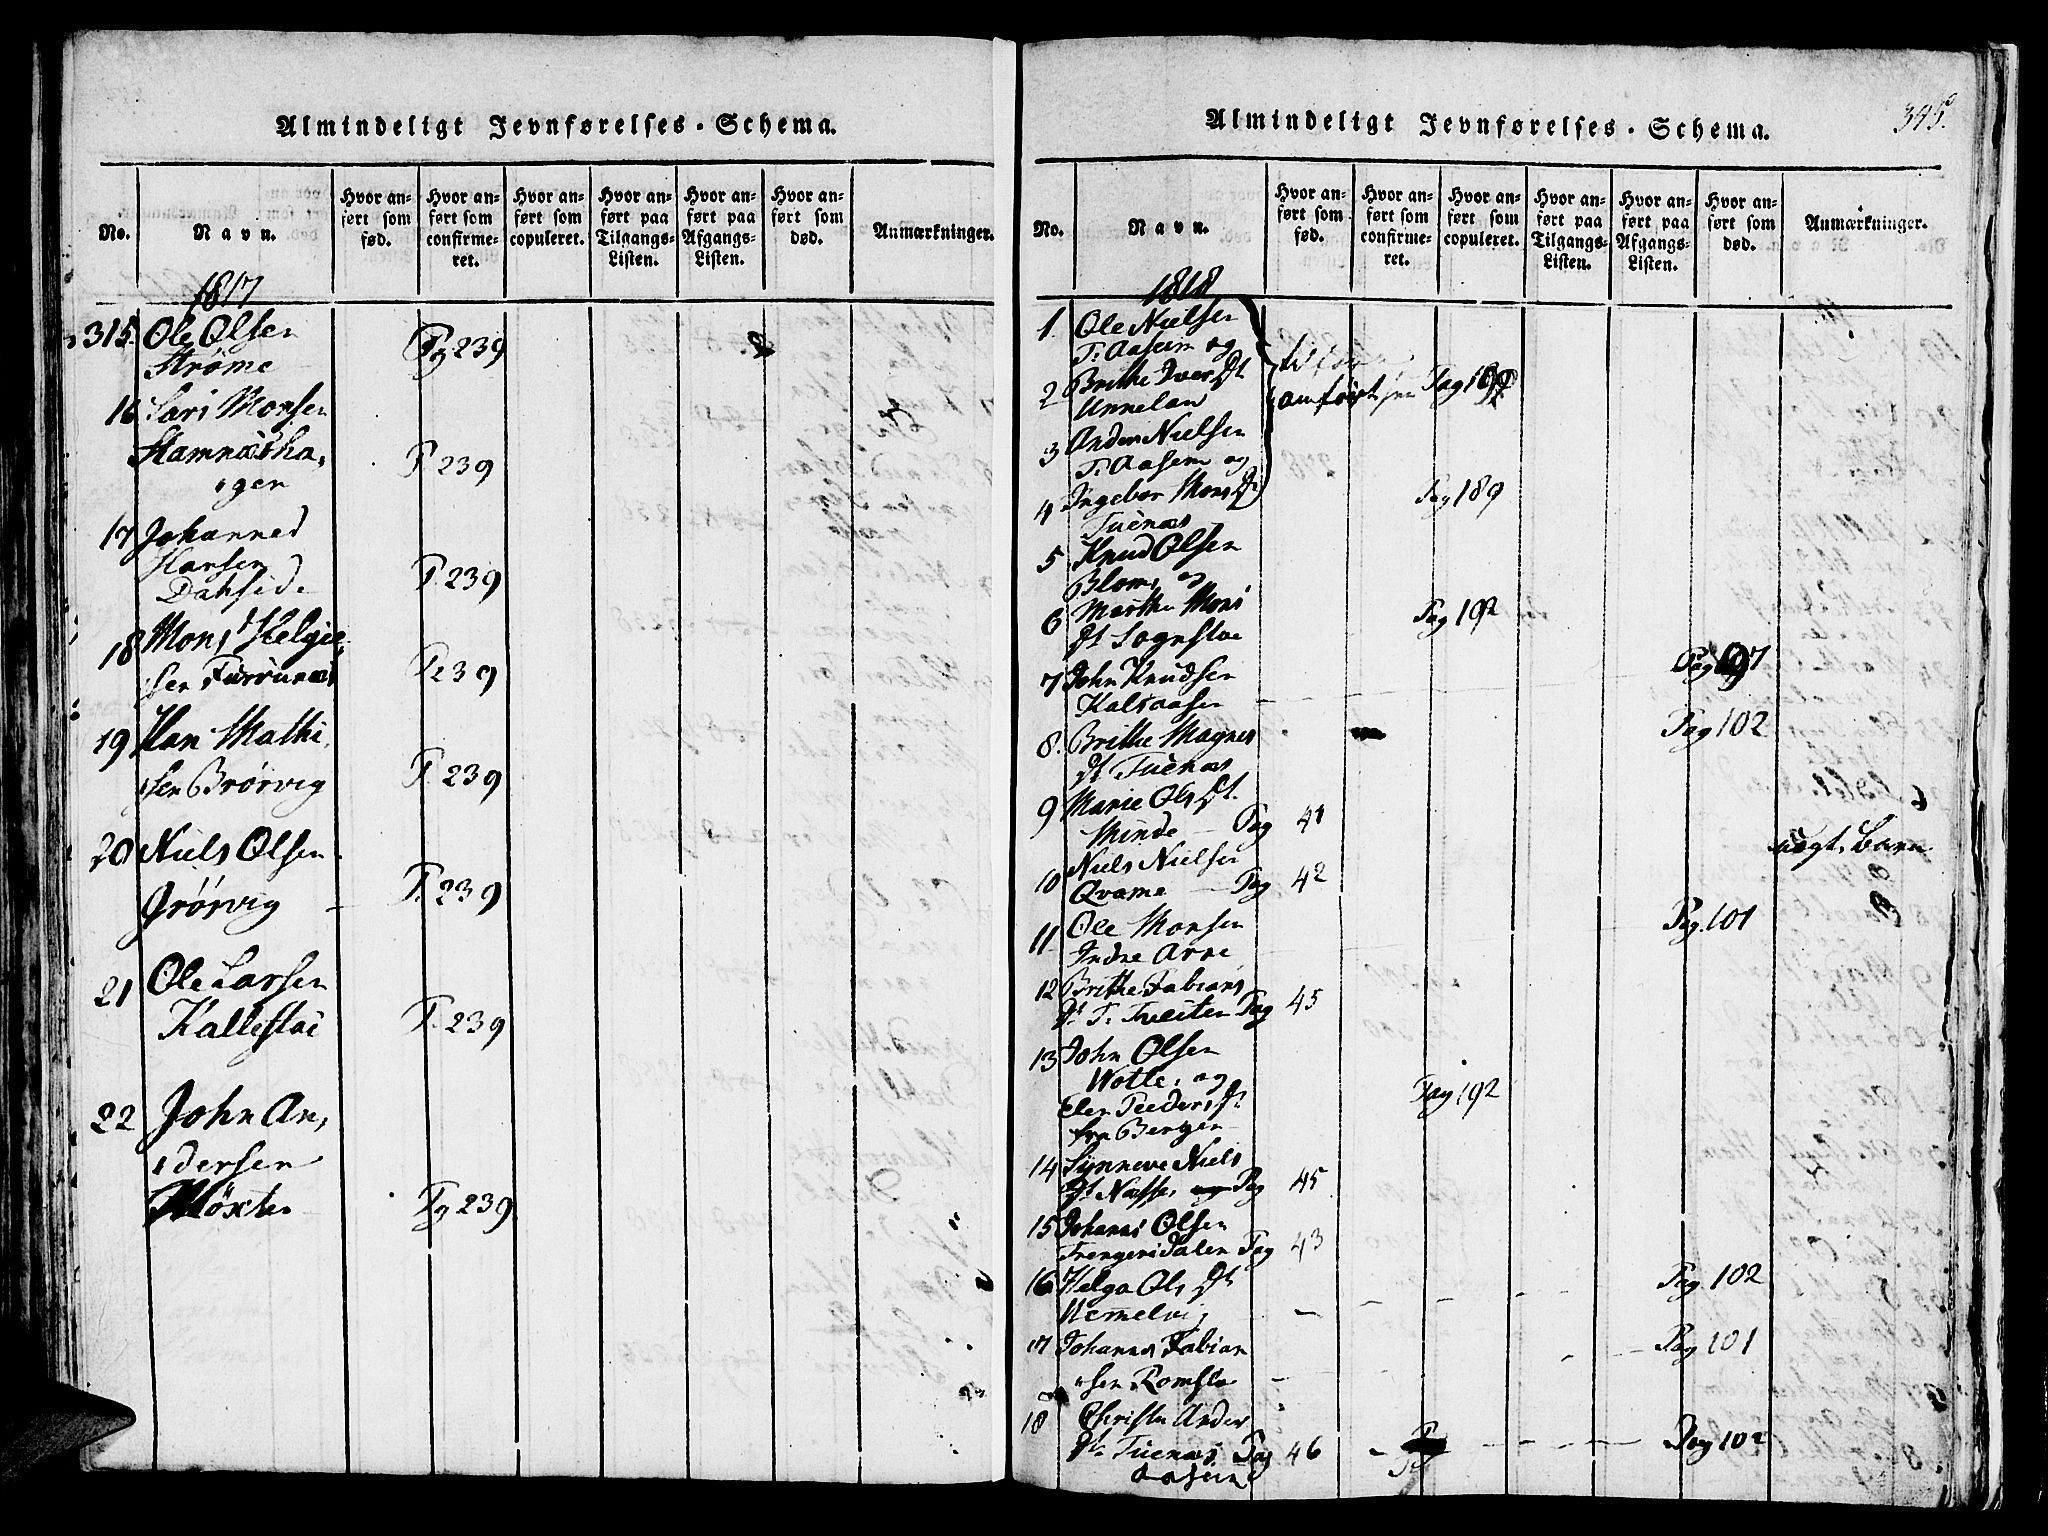 Almindeligt Jevnførelses-Schema.
No.
Navn.
Hvor an-
ført som
fød.
Hvor an-
ført som
confirme-
ret.
Hvor an-
ført som
copuleret.
Hvor an-
ført paa
Tilgangs-
Listen.
Hvor an-
ført paa
Afgangs-
Listen.
Hvor an-
ført som
død.
Anmærkninger.
1817
315. Ole Olsen
Strøme Pg 239
16 Lars Monsen
Stamnæsha,
gen P 239
17 Johannes
Hansen
Dahseide P. 239
18 Mons Helgie,
sen Furrunæs P 239
19 Han Mathi,
sen Brørvig P. 239
20 Niels Olsen
Grørvig P. 239
21 Ole Larsen
Kallestae P. 239
22 John An,
dersen
Möxter Pg 239
Almindeligt Jevnførelses-Schema.
345.
No.
Navn.
Hvor an-
ført som
fød.
Hvor an-
ført som
confirme-
ret.
Hvor an-
ført som
copuleret.
Hvor an-
ført paa
Tilgangs-
Listen.
Hvor an-
ført paa
Afgangs-
Listen.
Hvor an-
ført som
død.
Anmærkninger.
1818
1. Ole Nielsen
T. Aasem og
2 Brithe Iver Dt
Unneland anført Pag 189
3 Anders Nielsen
T. Aasem og
4 Ingebor Mons Dt
Tuenæs Pag 189
5 Knud Olsen
Blom, og
6 Marthe Mons
Dt Sognstae Pag 192
7 John Knudsen
Kalsaasen Pag 97
8. Brithe Magnes
Dt Tuenæs Pag 102
9 Marie Ols Dt.
Minde Pag 41 uægt. Barn
10 Niels Nielsen
Qvame Pag 42
11 Ole Monsen
Indre Arne Pag. 101
12 Brithe Fabians
Dt. T. Tveiten Pag 45
13 John Olsen
Wotle, og
Elen Peeders Dt
fra Bergen Pag 192
14 Synneve Niels
Dt Næsse, Pag 45
15 Johans Olsen
Frengeridalen Pag 43
16. Helga Ols Dt
Hemmelvig Pag 102
17 Johannes Fabian
sen Romslo Pag 101
18 Christie Anders
Dt. Tuenæs Pag 46 Pag 102